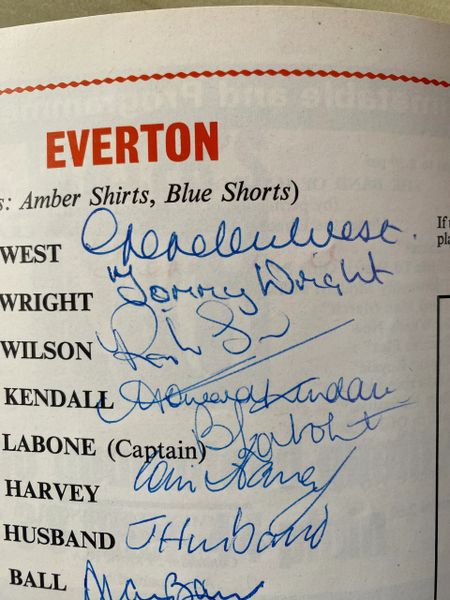 EVERTON
s: Amber Shirts, Blue Shorts)
WEST Gordon West.
WRIGHT Tommy Wright
WILSON
KENDALL Howard Kendall
LABONE (Captain) B Labone
HARVEY Colin Harvey
HUSBAND J Husband
BALL Alan Ball
If
pla